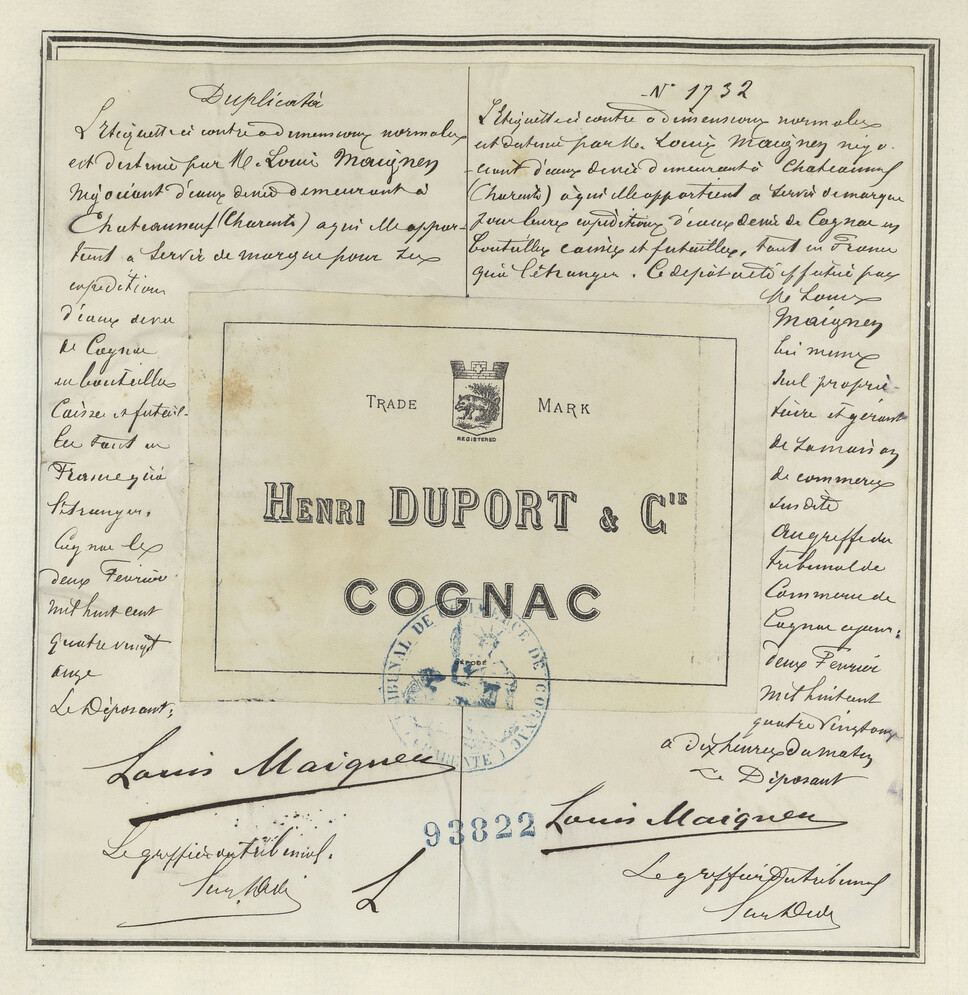 Duplicata
L'Etiquette ci contre a dimensions normales
est destinée par M. Louis Maignen
Négociant d'eaux de vie demeurant à
Chateauneuf (Charente) a qui elle appar-
tient a servir de marque pour ses
expéditions
d'eaux de vie
de Cognac
en bouteilles
Caisses et futail-
les tant en
France qu'à
l'étranger.
Cognac le
deux Février
mil huit cent
quatre vingt
onze
Le Déposant:
Louis Maignen
Le greffier du tribunal.
N° 1732
L'Etiquette ci contre a dimensions normales
est destinée par M. Louis Maignen négo-
ciant d'eaux de vie demeurant à Chateauneuf
(Charente) à qui elle appartient a servir de marque
pour leurs expéditions d'eaux de vie de Cognac en
bouteilles caisses et futailles, tant en France
qu'à l'étranger. Ce dépôt a été effectué par
M. Louis
Maignen
lui même
seul proprié-
taire et gérant
de la maison
de commerce
susdite
au greffe du
tribunal de
Commerce de
Cognac ce jour:
deux Février
mil huit cent
quatre vingt onze
a dix heures du matin
Le Déposant
Louis Maignen
Le greffier du tribunal
TRADE MARK
REGISTERED
HENRI DUPORT & CIE
COGNAC
DÉPOSÉ
TRIBUNAL DE COMMERCE DE COGNAC
(CHARENTE)
93822